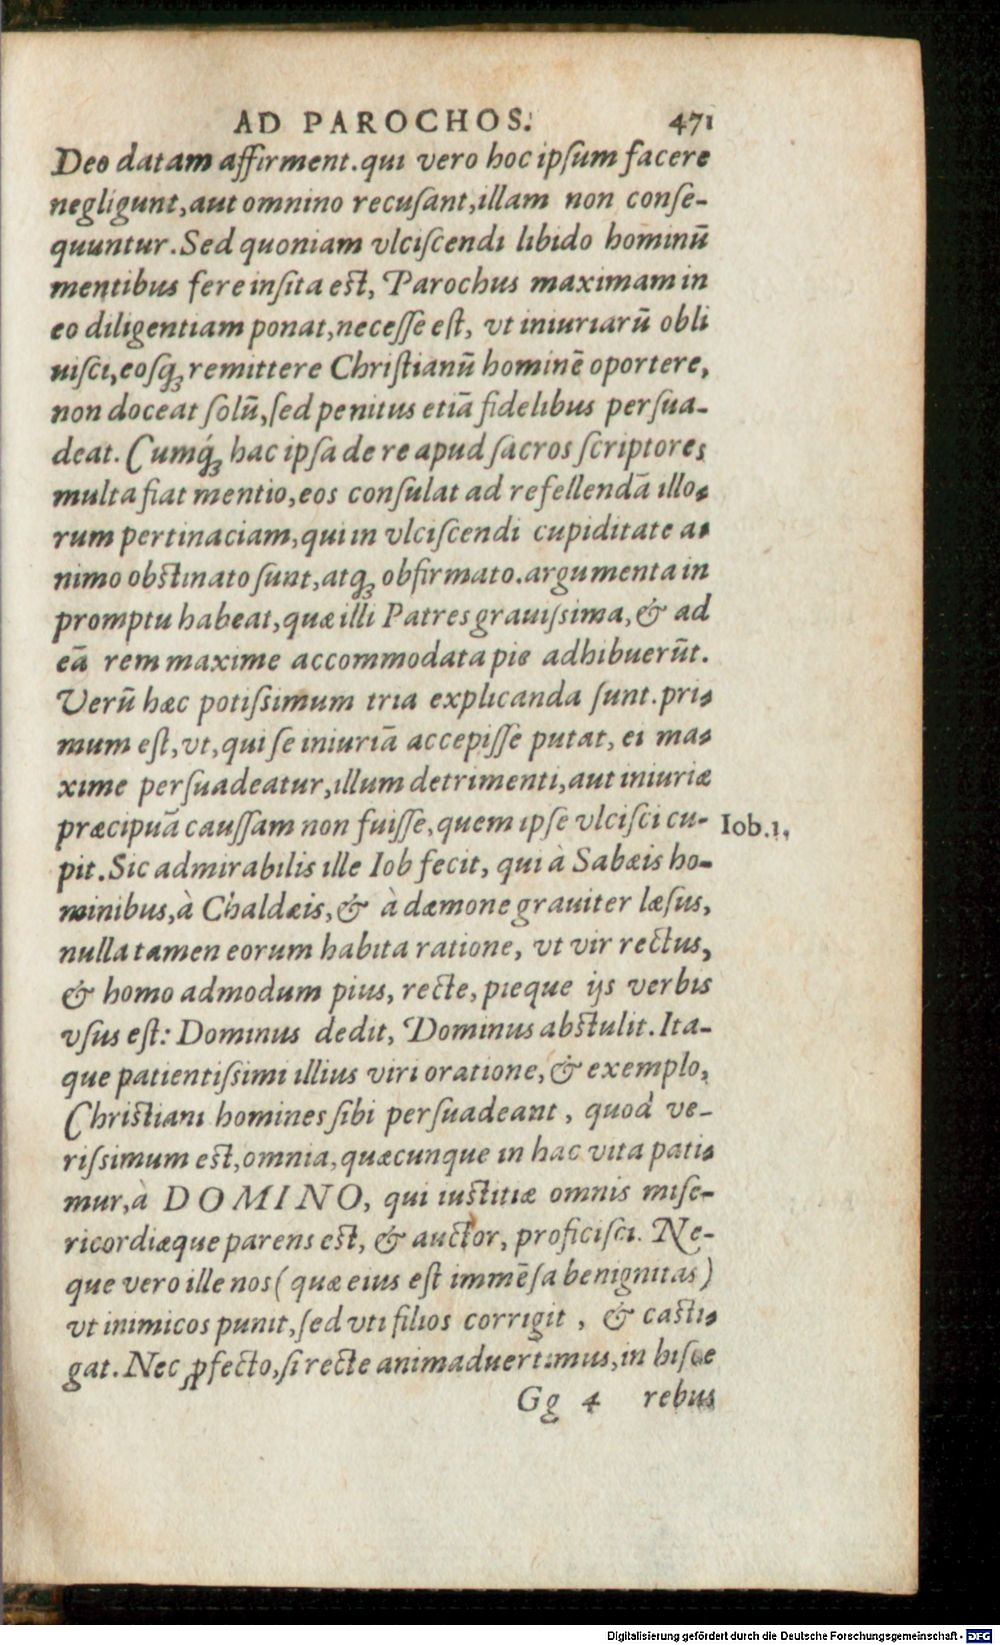 AD PAROCHOS. 471
Deo datam affirment. qui vero hoc ipſum facere
negligunt, aut omnino recuſant, illam non conſe-
quuntur. Sed quoniam vlciſcendi libido hominū
mentibus fere inſita eſt, Parochus maximam in
eo diligentiam ponat, neceſſe eſt, vt iniuriarū obli
uiſci, eoſqꝫ remittere Chriſtianū hominē oportere,
non doceat ſolū, ſed penitus etiā fidelibus perſua-
deat. Cumq́ꝫ hac ipſa de re apud ſacros ſcriptores
multa fiat mentio, eos conſulat ad refellendā illo-
rum pertinaciam, qui in vlciſcendi cupiditate a-
nimo obſtinato ſunt, atqꝫ obfirmato. argumenta in
promptu habeat, quæ illi Patres grauiſsima, & ad
eā rem maxime accommodata pie adhibuerūt.
Verū hæc potiſsimum tria explicanda ſunt. pri-
mum eſt, vt, qui ſe iniuriā accepiſſe putat, ei ma-
xime perſuadeatur, illum detrimenti, aut iniuriæ
præcipuā cauſſam non fuiſſe, quem ipſe vlciſci cu- Iob.1.
pit. Sic admirabilis ille Iob fecit, qui à Sabæis ho-
minibus, à Chaldæis, & à dæmone grauiter læſus,
nulla tamen eorum habita ratione, vt vir rectus,
& homo admodum pius, recte, pieque ijs verbis
vſus eſt: Dominus dedit, Dominus abſtulit. Ita-
que patientiſsimi illius viri oratione, & exemplo,
Chriſtiani homines ſibi perſuadeant, quod ve-
riſsimum eſt, omnia, quæcunque in hac vita pati-
mur, à DOMINO, qui iuſtitiæ omnis miſe-
ricordiæque parens eſt, & auctor, proficiſci. Ne-
que vero ille nos (quæ eius eſt immēſa benignitas)
vt inimicos punit, ſed vti filios corrigit, & caſti-
gat. Nec ꝓfecto, ſi recte animaduertimus, in hiſce
Gg 4 rebus
Digitalisierung gefördert durch die Deutsche Forschungsgemeinschaft - DFG